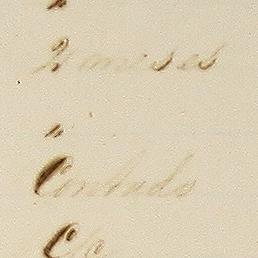 "
2 meses
"
Contado